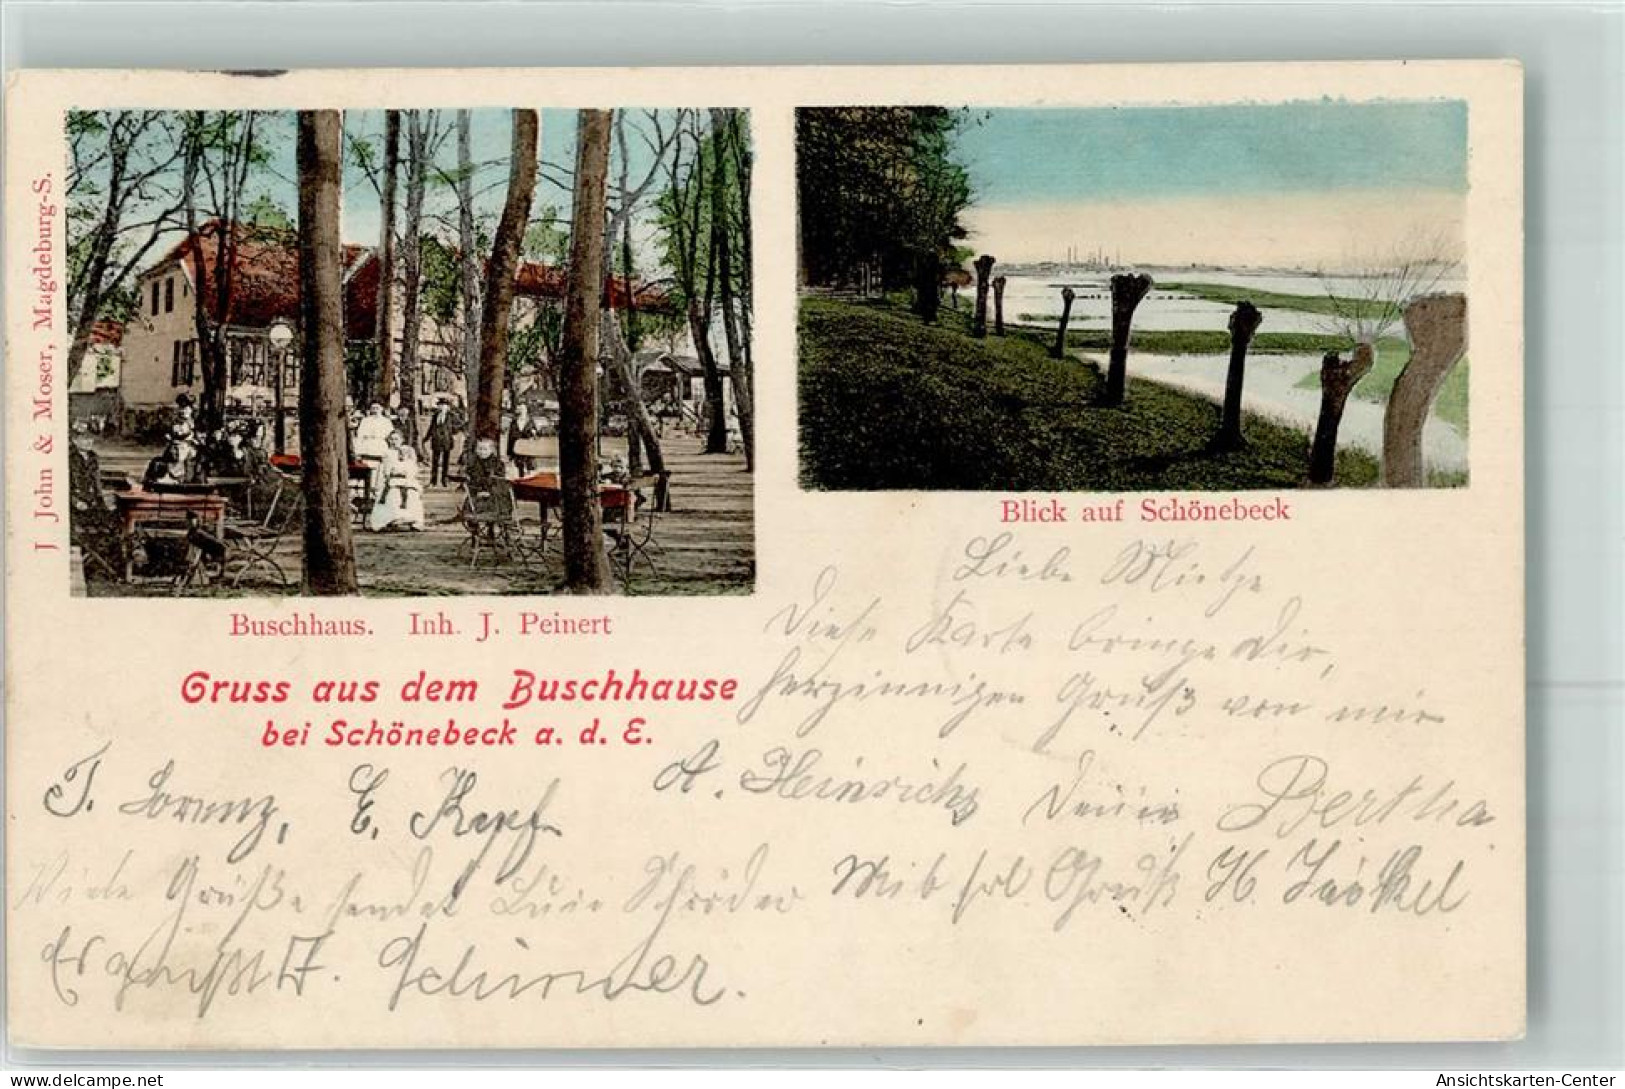 J John & Moser, Magdeburg-S.
Buschhaus. Inh. J. Peinert
Blick auf Schönebeck
Gruss aus dem Buschhause
bei Schönebeck a. d. E.
Liebe Mietze
Diese Karte bringe Dir,
herzinnigen Gruß von mir
Deine Bertha
A. Heinrichs
T. Lorenz, E. Kopf
Viele Grüße sendet Luise Schröder
Mit frl. Gruß H. Jäckel
Es grüßt F. Schirmer.
Ansichtskarten-Center